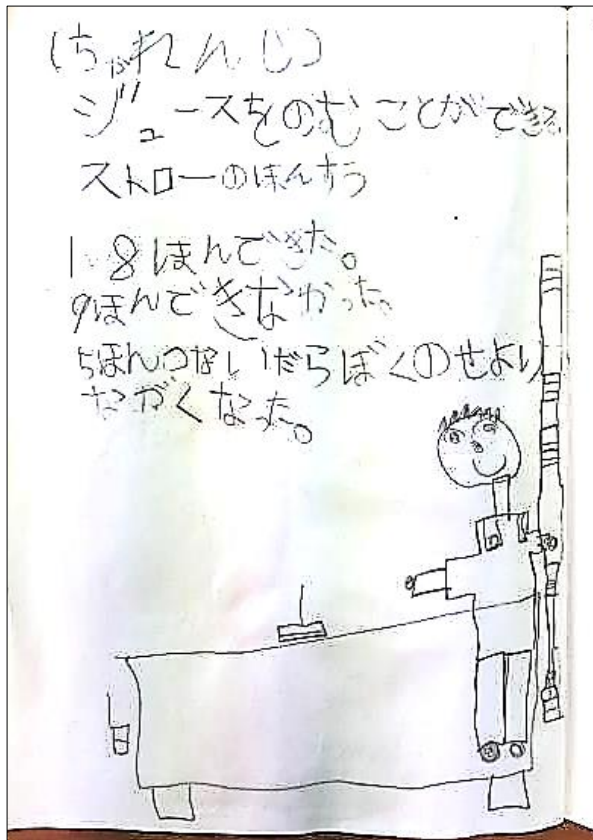 (ちゃれんじ)
ジュースをのむことができる
ストローのほんすう
1.8ほんできた。
9ほんできなかった。
5ほんつないだらぼくのせより
ながくなった。